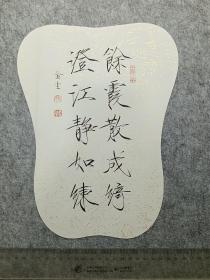 餘霞散成綺
澄江靜如練